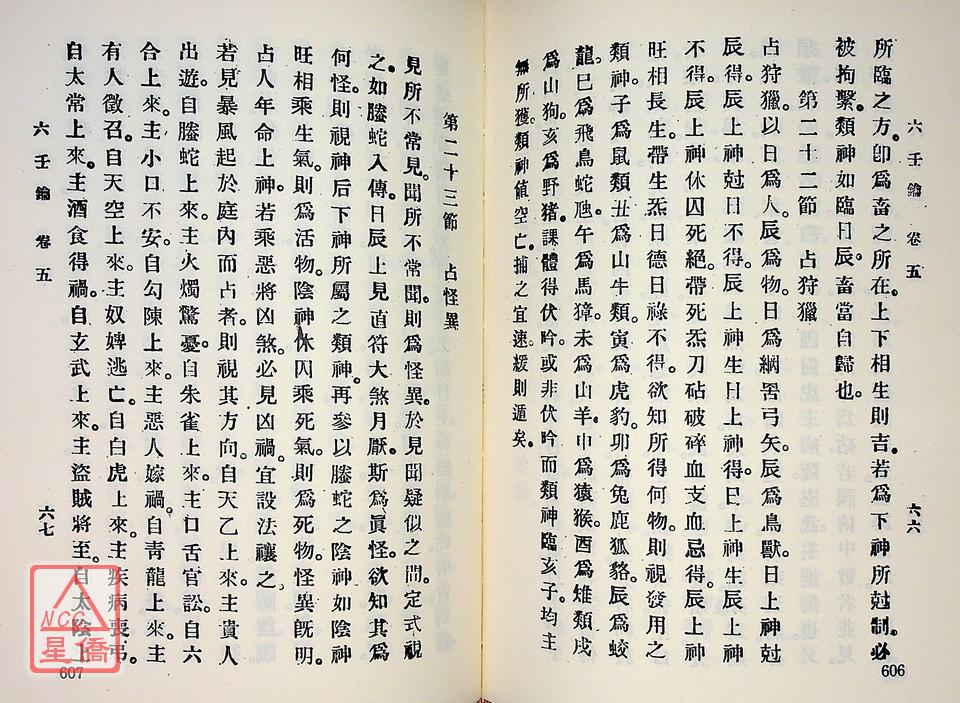 六壬鑰 卷五 六六
所臨之方。卽爲畜之所在。上下相生則吉。若爲下神所尅制。必
被拘繫。類神如臨日辰。畜當自歸也。
第二十二節 占狩獵
占狩獵。以日爲人。辰爲物。日爲網罟弓矢。辰爲鳥獸。日上神尅
辰。得。辰上神尅日不得。辰上神生日上神得。日上神生辰上神
不得。辰上神休囚死絕。帶死炁刀砧破碎血支血忌得。辰上神
旺相長生。帶生炁日德日祿不得。欲知所得何物。則視發用之
類神。子爲鼠類。丑爲山牛類。寅爲虎豹。卯爲兔鹿狐貉。辰爲蛟
龍。巳爲飛鳥蛇虺。午爲馬獐。未爲山羊。申爲猿猴。酉爲雉類。戌
爲山狗。亥爲野猪。課體得伏吟。或非伏吟而類神臨亥子。均主
無所獲。類神値空亡。捕之宜速。緩則遁矣。
606
第二十三節 占怪異
見所不常見。聞所不常聞。則爲怪異。於見聞疑似之間。定式視
之。如螣蛇入傳。日辰上見直符大煞月厭。斯爲眞怪。欲知其爲
何怪。則視神后下神所屬之類神。再參以螣蛇之陰神。如陰神
旺相乘生氣。則爲活物。陰神休囚乘死氣。則爲死物。怪異旣明。
占人年命上神。若乘惡將凶煞。必見凶禍。宜設法禳之。
若見暴風起於庭內而占者。則視其方向。自天乙上來。主貴人
出遊。自螣蛇上來。主火燭驚憂。自朱雀上來。主口舌官訟。自六
合上來。主小口不安。自勾陳上來。主惡人嫁禍。自靑龍上來。主
有人徵召。自天空上來。主奴婢逃亡。自白虎上來。主疾病喪弔。
自太常上來。主酒食得禍。自玄武上來。主盜賊將至。自太陰上
六壬鑰 卷五 六七
607
NCC
星僑